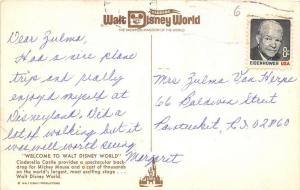 Walt Disney World
THE VACATION KINGDOM OF THE WORLD
Dear Zulma,
Had a nice plane
trip and really
enjoyed myself at
Disneyland. Did a
lot of walking but it
was well worth seeing
Margaret
"WELCOME TO WALT DISNEY WORLD"
Cinderella Castle provides a spectacular back-
drop for Mickey Mouse and a cast of thousands
on the world's largest, most exciting stage . .
Walt Disney World.
© WALT DISNEY PRODUCTIONS
6
8c
EISENHOWER USA
Mrs Zulma Van Herpe
66 Baldwin Street
Pawtucket, R.I. 02860